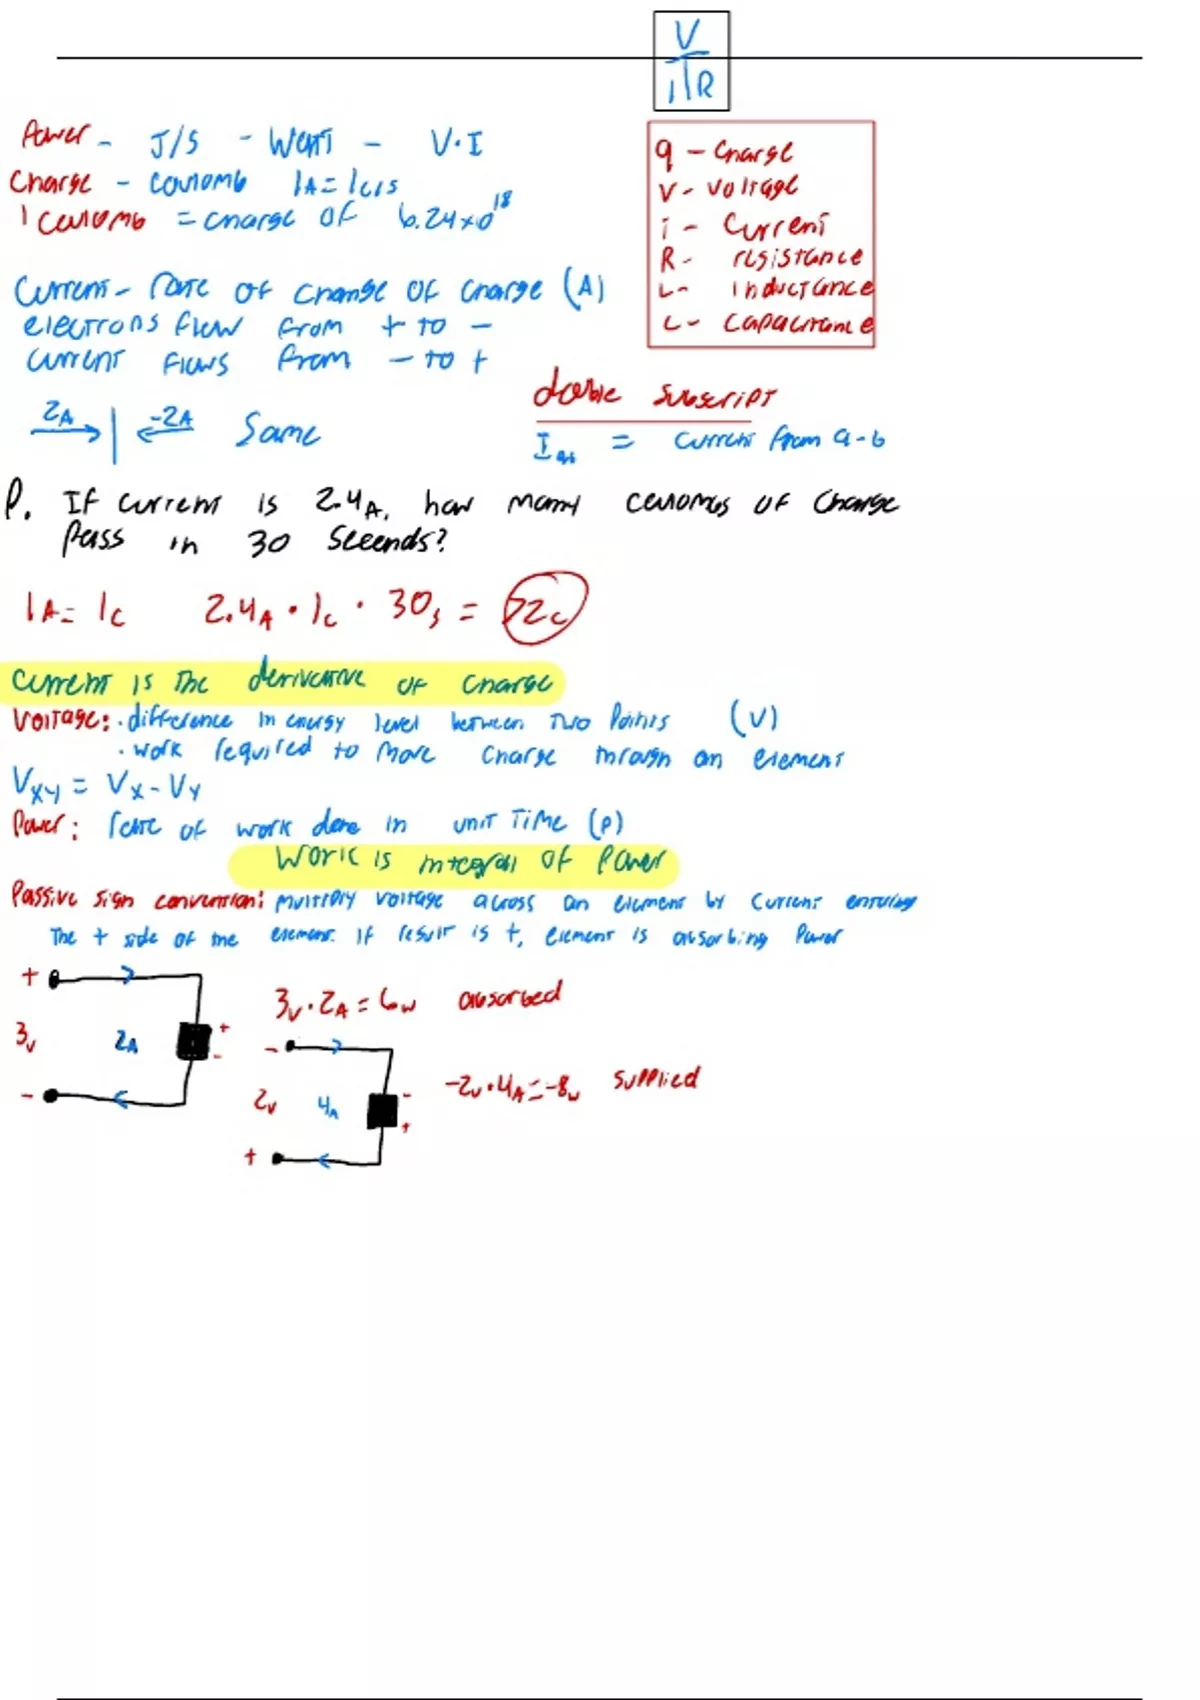 V
i | R
Power - J/S - Watt - V·I
Charge - Coulomb 1A = 1C/s
1 Coulomb = charge of 6.24x10^18
q - Charge
V - Voltage
i - Current
R - resistance
L - Inductance
C - Capacitance
Current - Rate of change of charge (A)
electrons flow from + to -
current flows from - to +
2A | -2A Same
double subscript
I ab = current from a-b
P. If current is 2.4A, how many coulombs of charge
pass in 30 seconds?
1A = 1C 2.4A · 1C · 30s = 72C
Current is the derivative of charge
Voltage: · difference in energy level between two points (V)
· work required to move charge through an element
Vxy = Vx - Vy
Power: rate of work done in unit time (P)
Work is integral of Power
Passive sign convention: multiply voltage across an element by current entering
The + side of the element. If result is +, element is absorbing power
+
3V 2A + -
-
3V · 2A = 6W absorbed
-
2V 4A - +
+
-2V · 4A = -8W supplied